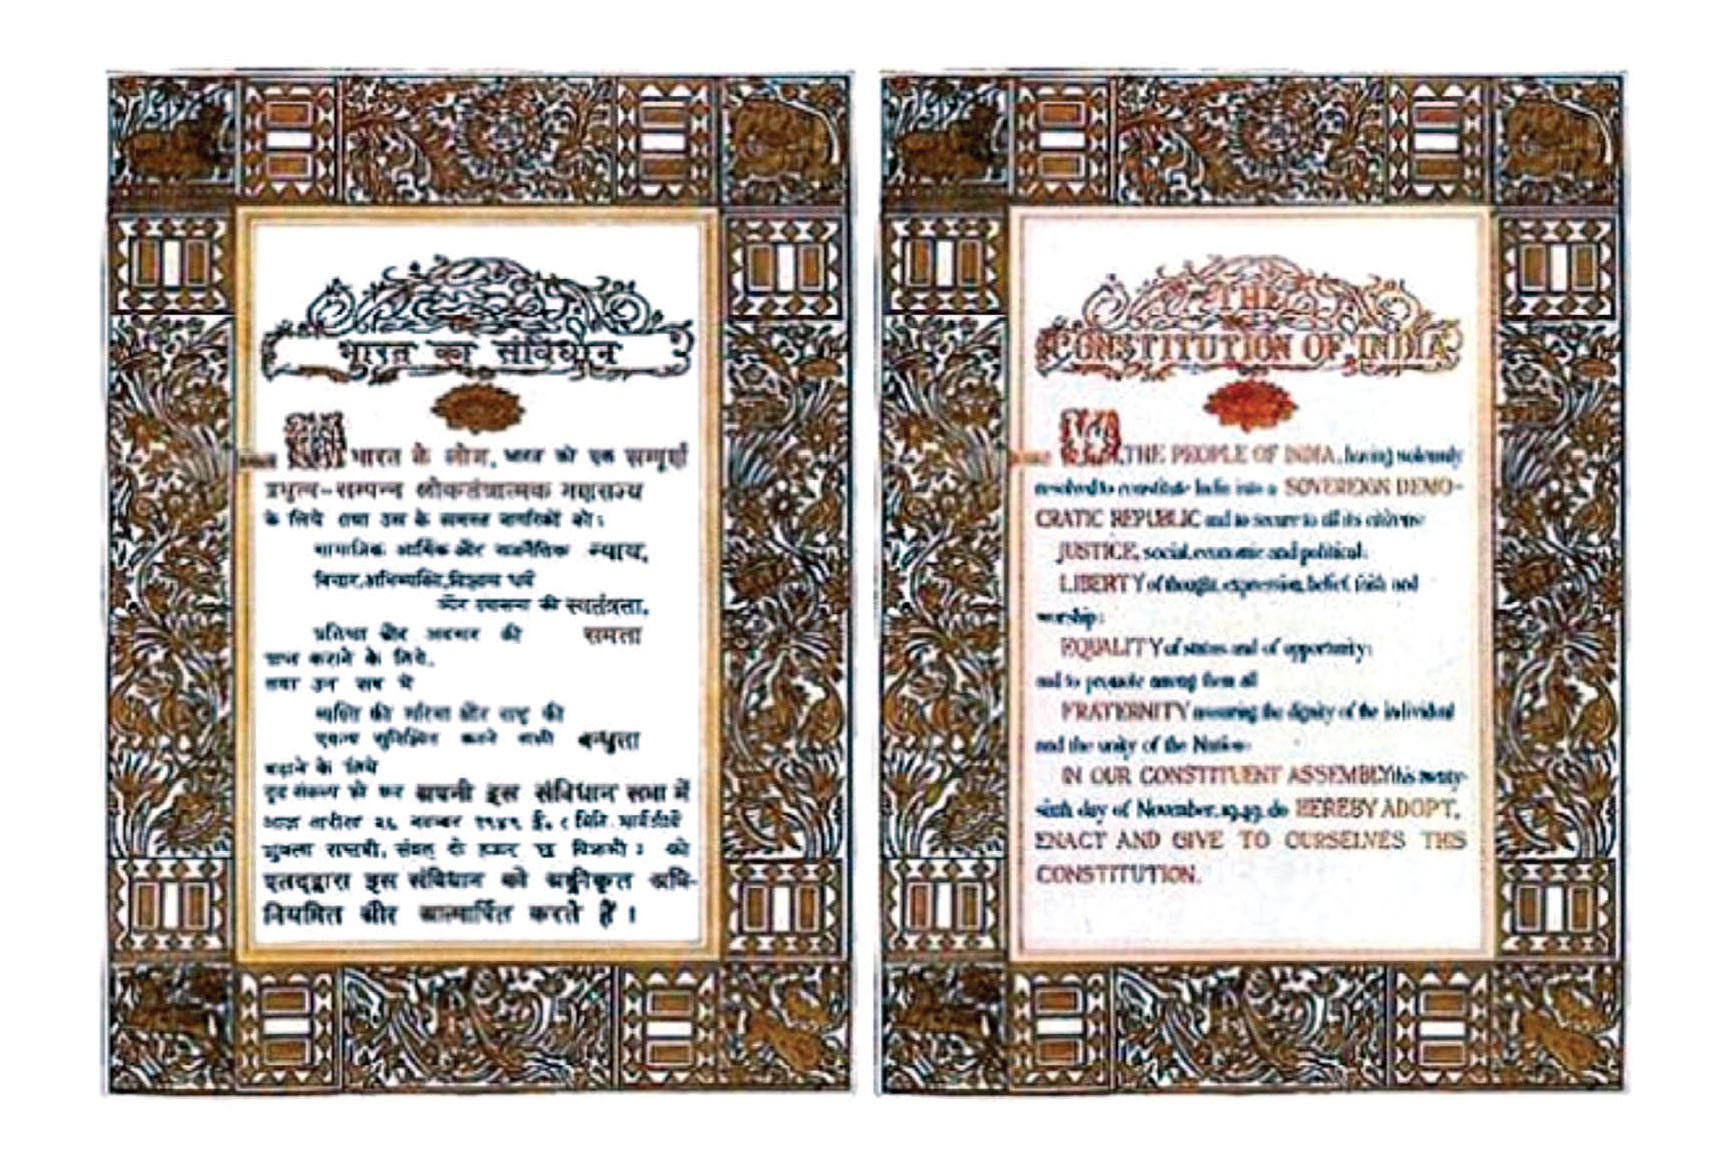 भारत का संविधान
भारत के लोग, भारत को एक सम्पूर्ण
प्रभुत्व-सम्पन्न लोकतंत्रात्मक गणराज्य
के लिये तथा उस के समस्त नागरिकों को:
सामाजिक आर्थिक और राजनैतिक न्याय,
विचार, अभिव्यक्ति, विश्वास धर्म
और उपासना की स्वतंत्रता,
प्रतिष्ठा और अवसर की समता
प्राप्त कराने के लिये,
तथा उन सब में
व्यक्ति की गरिमा और राष्ट्र की
एकता सुनिश्चित करने वाली बन्धुता
बढ़ाने के लिये
दृढ़ संकल्प हो कर अपनी इस संविधान सभा में
आज तारीख २६ नवम्बर १९४९ ई०
शुक्ला सप्तमी, संवत् दो हजार छः विक्रमी) को
एतद्द्वारा इस संविधान को अङ्गीकृत अधि-
नियमित और आत्मार्पित करते हैं।
THE
CONSTITUTION OF INDIA
WE, THE PEOPLE OF INDIA, having solemnly
resolved to constitute India into a SOVEREIGN DEMO-
CRATIC REPUBLIC and to secure to all its citizens:
JUSTICE, social, economic and political;
LIBERTY of thought, expression, belief, faith and
worship;
EQUALITY of status and of opportunity;
and to promote among them all
FRATERNITY assuring the dignity of the individual
and the unity of the Nation;
IN OUR CONSTITUENT ASSEMBLY this twenty-
sixth day of November, 1949, do HEREBY ADOPT,
ENACT AND GIVE TO OURSELVES THIS
CONSTITUTION.